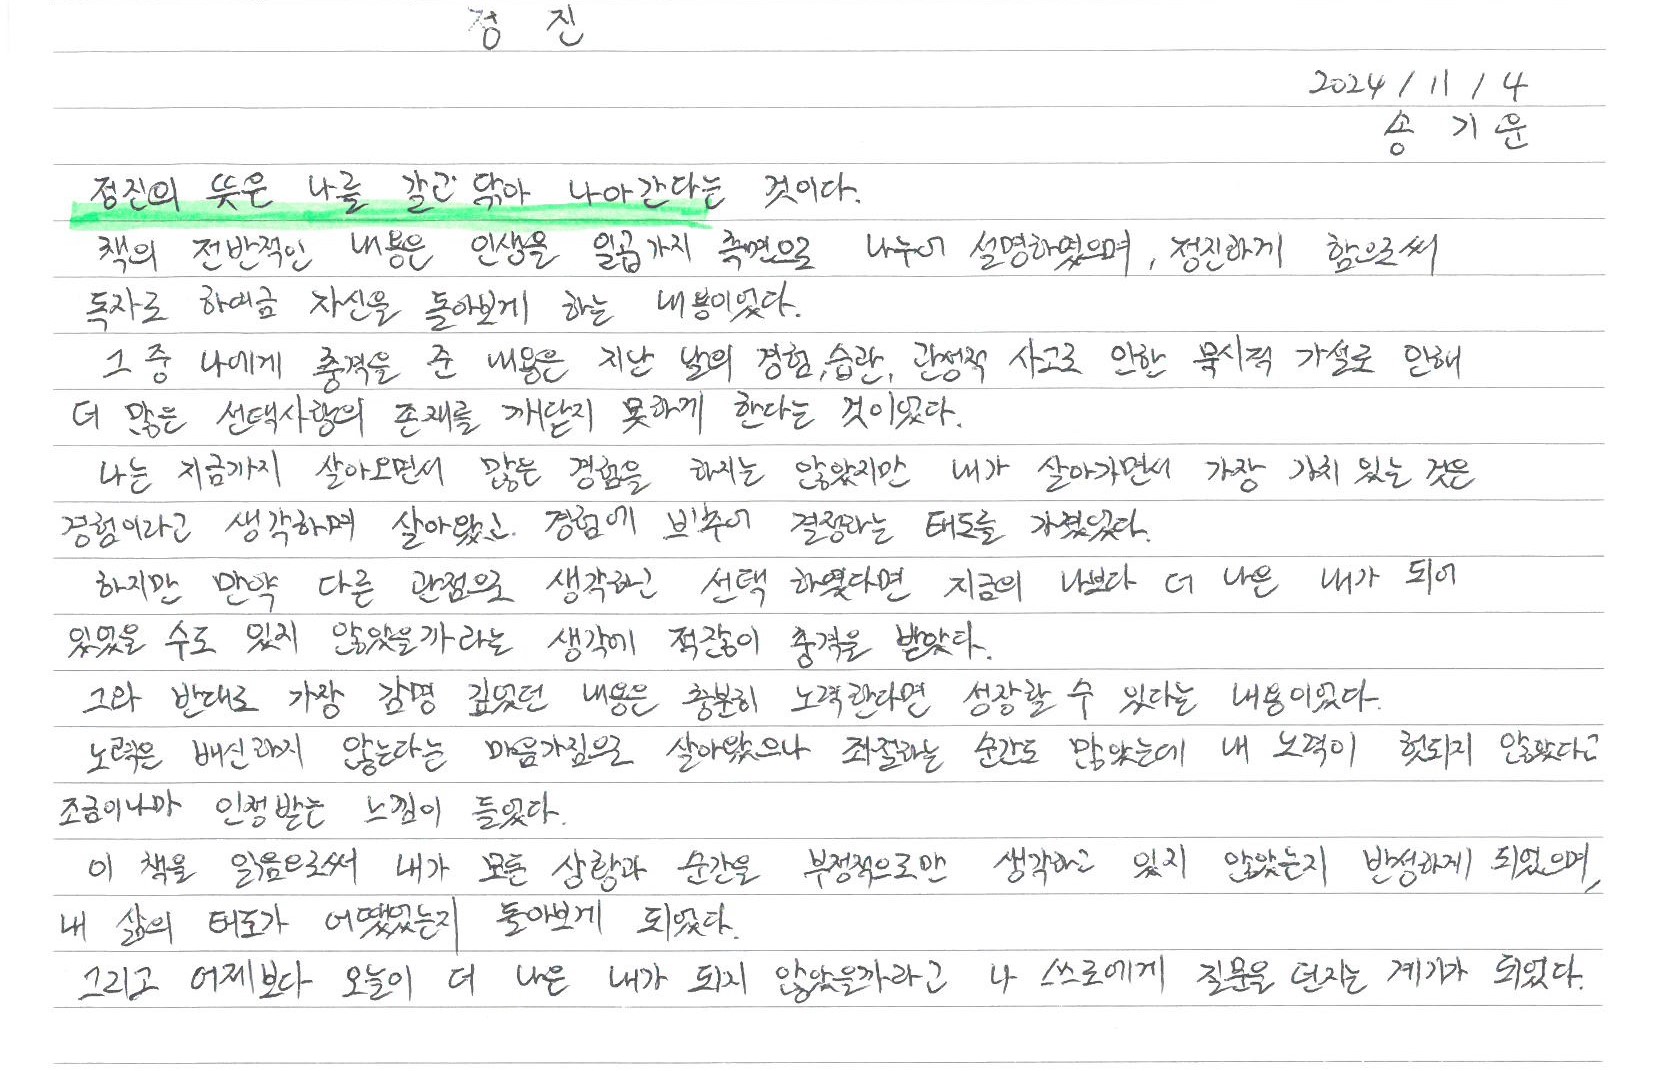 정 진
2024 / 11 / 4
송 기 윤
정진의 뜻은 나를 갈고 닦아 나아간다는 것이다.
책의 전반적인 내용은 인생을 일곱가지 측면으로 나누어 설명하였으며, 정진하게 함으로써
독자로 하여금 자신을 돌아보게 하는 내용이었다.
그 중 나에게 충격을 준 내용은 지난 날의 경험, 습관, 관성적 사고로 인한 묵시적 가설로 인해
더 많은 선택사항의 존재를 깨닫지 못하게 한다는 것이었다.
나는 지금까지 살아오면서 많은 경험을 하지는 않았지만 내가 살아가면서 가장 가치 있는 것은
경험이라고 생각하며 살아왔고. 경험에 비추어 결정하는 태도를 가졌었다.
하지만 만약 다른 관점으로 생각하고 선택 하였다면 지금의 나보다 더 나은 내가 되어
있었을 수도 있지 않았을까라는 생각에 적잖이 충격을 받았다.
그와 반대로 가장 감명 깊었던 내용은 충분히 노력한다면 성장할 수 있다는 내용이었다.
노력은 배신하지 않는다는 마음가짐으로 살아왔으나 좌절하는 순간도 많았는데 내 노력이 헛되지 않았다고
조금이나마 인정받는 느낌이 들었다.
이 책을 읽음으로써 내가 모든 상황과 순간을 부정적으로만 생각하고 있지 않았는지 반성하게 되었으며,
내 삶의 태도가 어땠었는지 돌아보게 되었다.
그리고 어제보다 오늘이 더 나은 내가 되지 않았을까라고 나 쓰로에게 질문을 던지는 계기가 되었다.